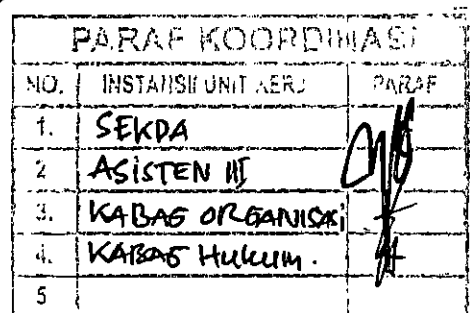 PARAF KOORDINASI
NO. INSTANSI/UNIT KERJ PARAF
1. SEKDA
2 ASISTEN III
3. KABAG ORGANISASI
4. KABAG HUKUM.
5